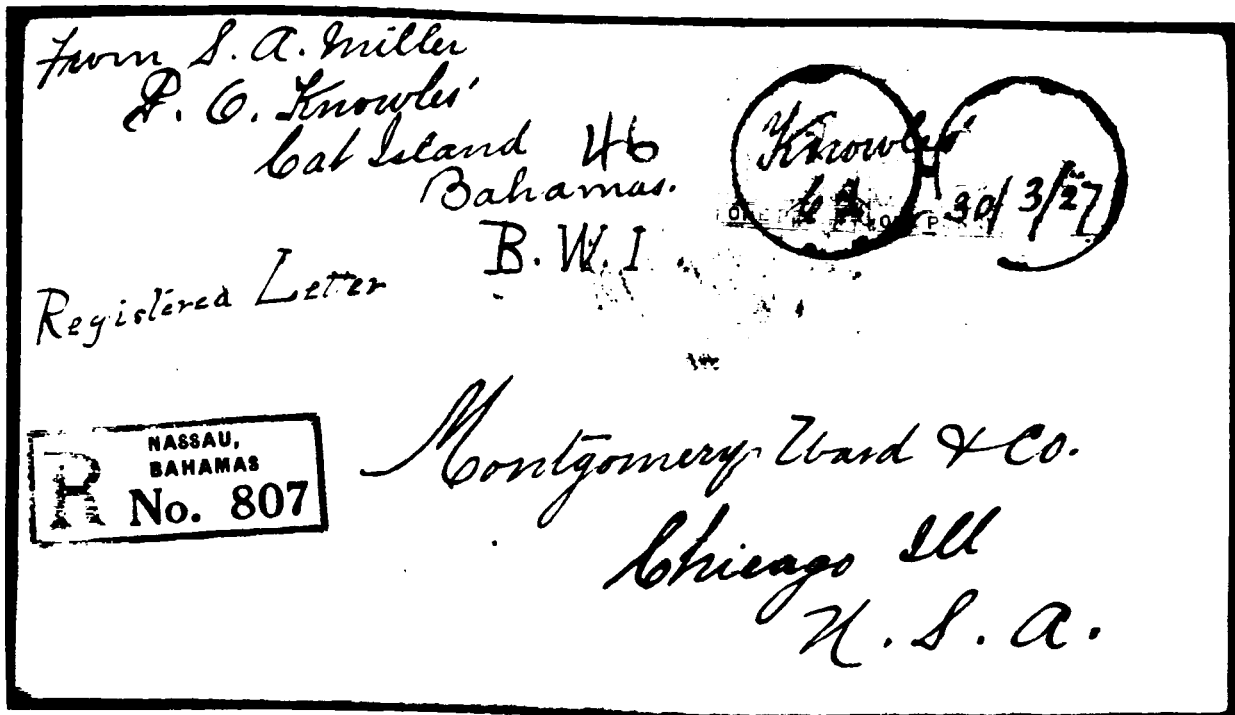 From S. A. Miller
P. O. Knowles'
Cat Island 46
Bahamas.
B. W. I
Knowles'
30/3/27
Registered Letter
R
NASSAU,
BAHAMAS
No. 807
Montgomery Ward & Co.
Chicago Ill
U. S. A.